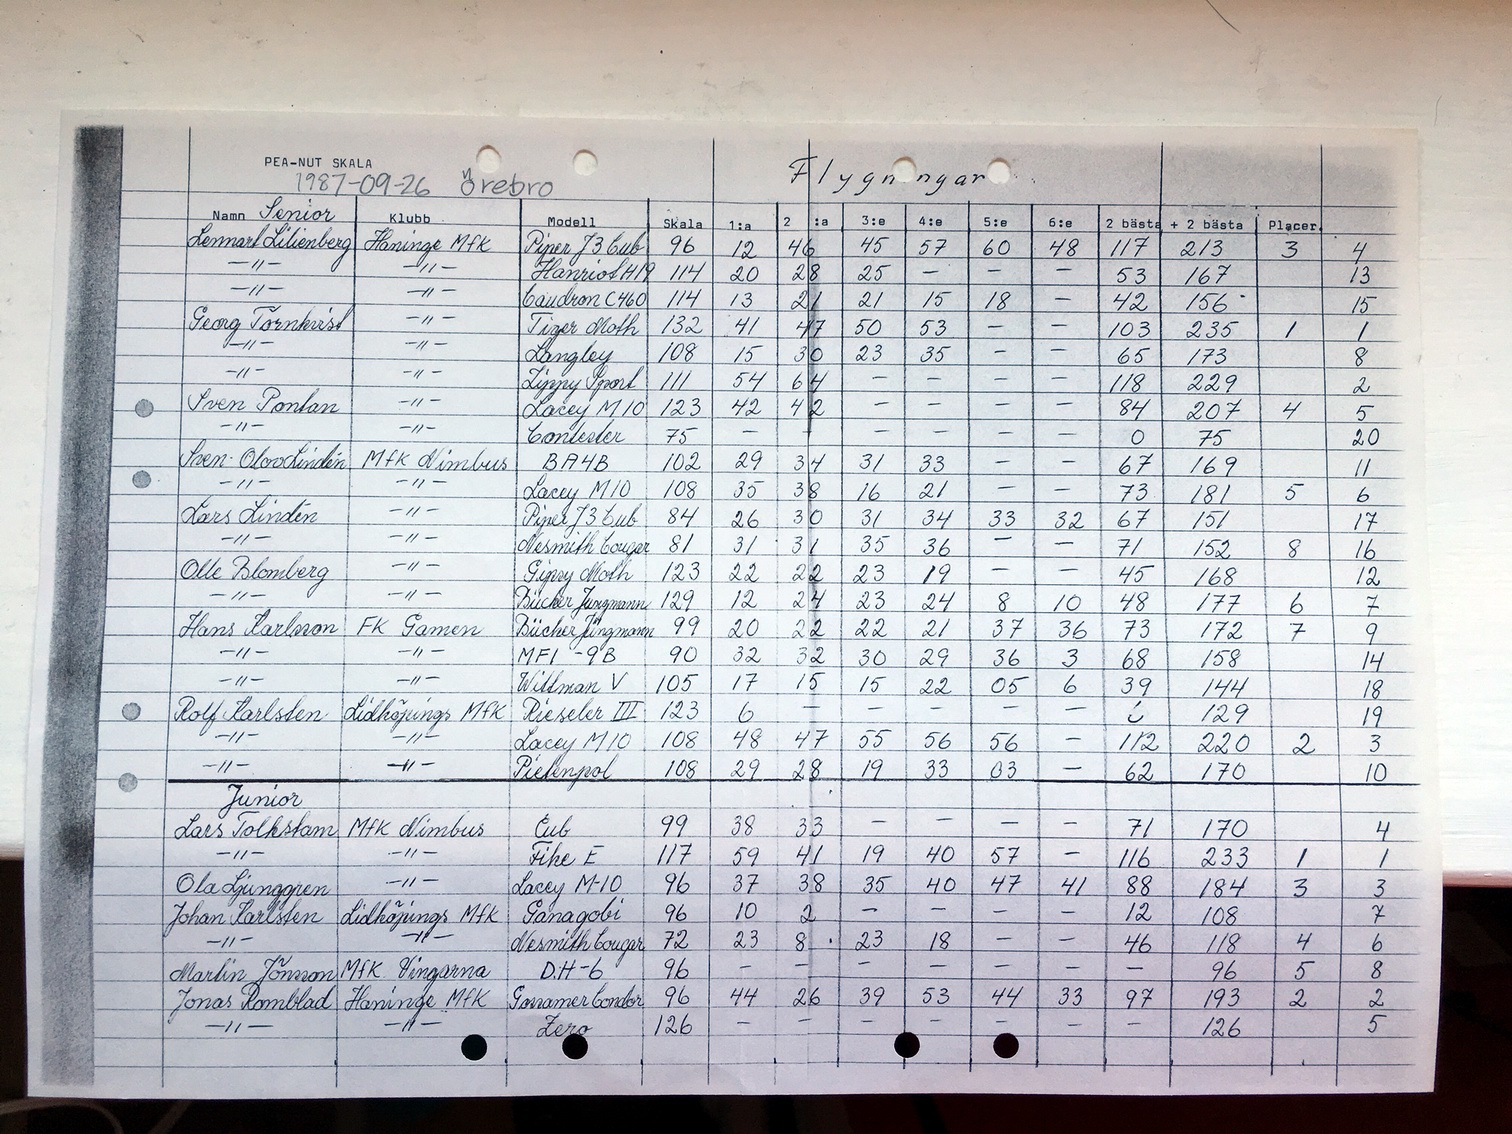 PEA-NUT SKALA
1987-09-26 Örebro Flygningar
Namn Senior Klubb Modell Skala 1:a 2:a 3:e 4:e 5:e 6:e 2 bästa + 2 bästa Placer.
Lennart Lilienberg Haninge MfK Piper J3 Cub 96 12 46 45 57 60 48 117 213 3 4
-"- -"- Hanriot H19 114 20 28 25 - - - 53 167 13
-"- -"- Caudron C460 114 13 21 21 15 18 - 42 156 15
Georg Törnkvist -"- Tiger Moth 132 41 47 50 53 - - 103 235 1 1
-"- -"- Langley 108 15 30 23 35 - - 65 173 8
-"- -"- Zippy Sport 111 54 64 - - - - 118 229 2
Sven Pontan -"- Lacey M10 123 42 42 - - - - 84 207 4 5
-"- -"- Contester 75 - - - - - - 0 75 20
Sven-Olov Lindén MfK Nimbus BA4B 102 29 34 31 33 - - 67 169 11
-"- -"- Lacey M10 108 35 38 16 21 - - 73 181 5 6
Lars Lindén -"- Piper J3 Cub 84 26 30 31 34 33 32 67 151 17
-"- -"- Nesmith Cougar 81 31 31 35 36 - - 71 152 8 16
Olle Blomberg -"- Gipsy Moth 123 22 22 23 19 - - 45 168 12
-"- -"- Bücker Jungmann 129 12 24 23 24 8 10 48 177 6 7
Hans Karlsson FK Gamen Bücker Jüngmann 99 20 22 22 21 37 36 73 172 7 9
-"- -"- MFI -9B 90 32 32 30 29 36 3 68 158 14
-"- -"- Wittman V 105 17 15 15 22 05 6 39 144 18
Rolf Karlsten Lidköpings MfK Rieseler III 123 6 - - - - - 129 19
-"- -"- Lacey M10 108 48 47 55 56 56 - 112 220 2 3
-"- -"- Pietenpol 108 29 28 19 33 03 - 62 170 10
Junior
Lars Tolkstam MfK Nimbus Cub 99 38 33 - - - - 71 170 4
-"- -"- Fike E 117 59 41 19 40 57 - 116 233 1 1
Ola Ljunggren -"- Lacey M-10 96 37 38 35 40 47 41 88 184 3 3
Johan Karlsten Lidköpings MfK Ganagobi 96 10 2 - - - - 12 108 7
-"- -"- Nesmith Cougar 72 23 8 23 18 - - 46 118 4 6
Martin Jönsson MfK Vingarna D.H-6 96 - - - - - - - 96 5 8
Jonas Romblad Haninge MfK Gossamer Condor 96 44 26 39 53 44 33 97 193 2 2
-"- -"- Zero 126 - - - - - - - 126 5